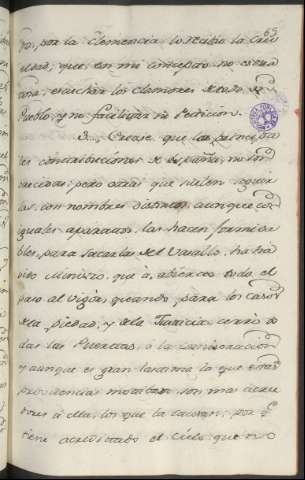 65
por la Clemencia lo recibio la Cru
eldad, que en mi concepto no es mui
escuchar los clamores de todo
Pueblo, y no facilitar su Peticion.
3... Crease que las principa
les contribuciones de España, no son
crecidas; pero otras que suelen seguir
las, con nombres distintos, aunque con
iguales apremios, las hacen formida
bles, para sacarlas del Vasallo, ha ha
vido Ministro, que à abierto todo el
paso al Vigor, quando para los casos
de la piedad, y de la Justicia cerrò to
das las Puertas, à la Comiseracion
y aunque es gran lastima lo que estas
providencias motiban son mas acree
dores à ella, los que la causan; por qe
tiene acreditado el Cielo que no